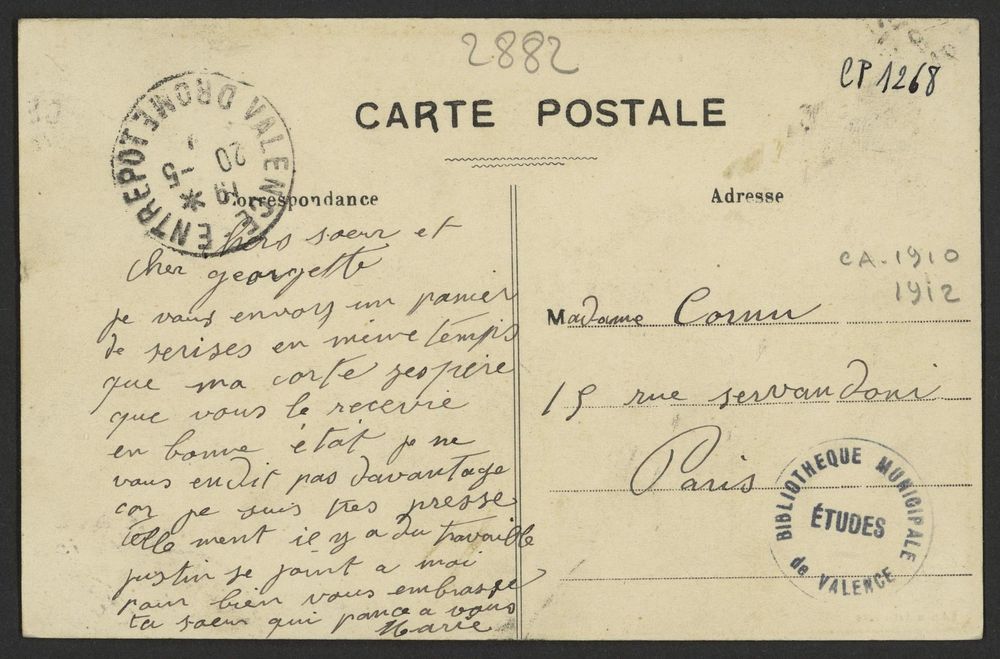 2882
CP 1268
CARTE POSTALE
VALENCE ENTREPOT DROME
20
19 -5
Correspondance
Adresse
CA. 1910
1912
chero soeur et
cher georgette
je vous envoys un panier
de serises en meine temps
que ma corte jespere
que vous le recevrie
en bonne état je ne
vous endit pas davantage
car je suis tres presse
telle ment il y a du travaille
justin se joint a moi
pour bien vous embrasse
ta soeur qui pance a vous
Marie
Madame Cornu
15 rue servandoni
Paris
BIBLIOTHEQUE MUNICIPALE
ÉTUDES
de VALENCE